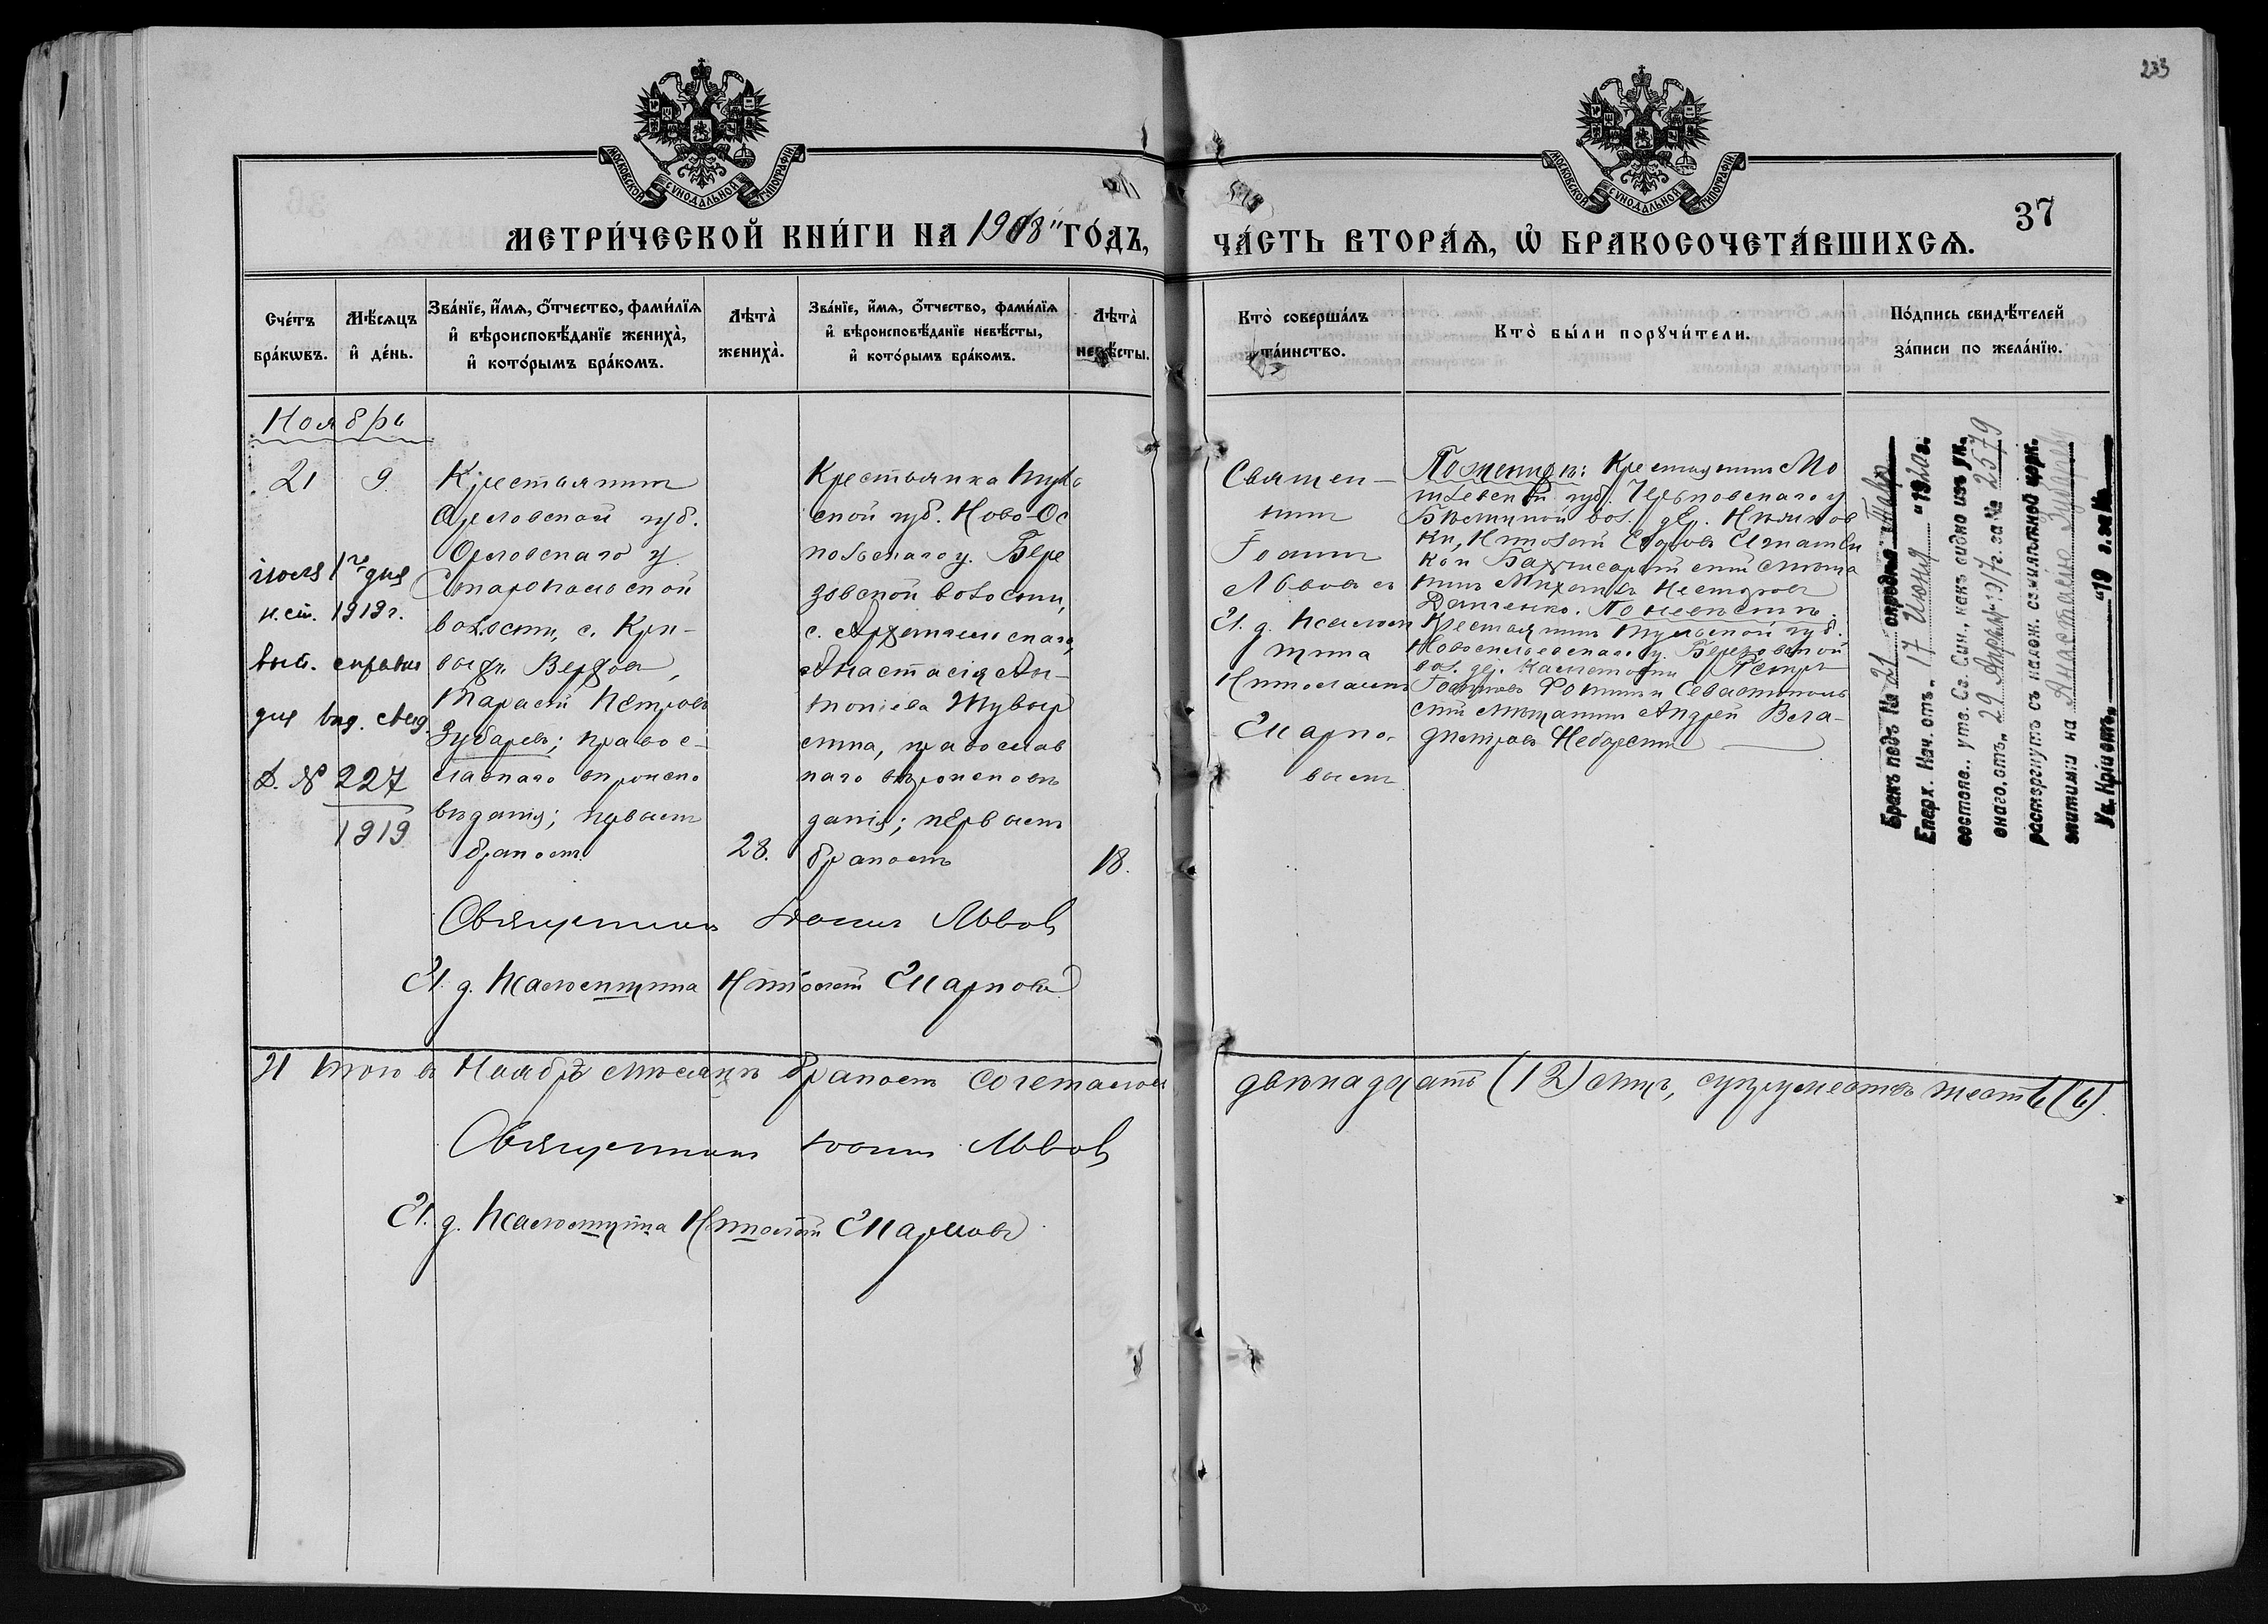 233
МОСКОВСКОЙ СѴНОДАЛЬНОЙ ТИПОГРАФІИ
МОСКОВСКОЙ СѴНОДАЛЬНОЙ ТИПОГРАФІИ
37
МЕТРИ́ЧЕСКОЙ КНИ́ГИ НА 1908 ГО́ДЪ,
ЧА́СТЬ ВТОРА́Ѧ, Ѽ БРАКОСОЧЕТА́ВШИХСѦ.
Сче́тъ бра́кѡвъ.
Мѣ́сѧцъ и҆ де́нь.
Зва́нїе, и҆́мѧ, ѻ҆́тчество, фами́лїѧ
и҆ вѣроисповѣ́данїе жениха̀,
и҆ кото́рымъ бра́комъ.
Лѣта̀ жениха̀.
Зва́нїе, и҆́мѧ, ѻ҆́тчество, фами́лїѧ
и҆ вѣроисповѣ́данїе невѣ́сты,
и҆ кото́рымъ бра́комъ.
Лѣта̀ невѣ́сты.
Кто̀ соверша́лъ та́инство.
Кто̀ бы́ли порꙋчи́тели.
По́дпись свидѣ́телей
за́писи по жела́нїю.
Ноябрь
21
9
іюля 1го дня
н.ст. 1919 г.
дня выд. свид.
№ 227
1919
Крестьянинъ
Орловской губ.
Орловскаго у.
волости, с. Кри-
выхъ Верховъ,
Тарасій Петровъ
Зубаревъ; правос-
лавнаго вѣроиспо
вѣданія; первымъ
бракомъ.
28.
Крестьянка Туль
ской губ. Ново-Си
польскаго у. Бере
зовской волости,
с. Архангельскаго,
Анастасія Ан-
тоніева
православ
наго вѣроисповѣ
данія; первымъ
бракомъ
18.
Священ-
никъ
Іоаннъ
Львовъ съ
И. д. псалом
щика
Ипполитомъ
Марко-
вымъ
По женихѣ: Крестьянинъ Мо
гилевской губ. Чериковскаго у
вол. дер.
Ипполитъ
Бахчисарайскій мѣща
нинъ Михаилъ Несторовъ
По невѣстѣ:
Крестьянинъ Тульской губ.
Новосильскаго у. Березовской
вол. дер. Петръ
Іоанновъ Фокинъ и Севастополь
скій мѣщанинъ Андрей Вла-
диміровъ
Бракъ подъ № 21 опредѣл. Тавр.
Епарх. Нач. отъ „17 Іюня“ 1920 г.
состояв., утв. Св. Син., какъ видно изъ ук.
онаго, отъ „29 Апрѣля 1917 г. за № 2579
расторгнутъ съ налож. семилѣтней церк.
епитиміи на Анастасію Зубареву
Ук. Кр. отъ „ “ 19 г. за №
Священникъ Іоаннъ Львовъ
И. д. псаломщика Ипполитъ Марковъ
Итого въ Ноябрѣ мѣсяцѣ бракомъ сочеталось
двѣнадцать (12) лицъ, супружествъ шесть (6).
Священникъ Іоаннъ Львовъ
И. д. псаломщика Ипполитъ Марковъ